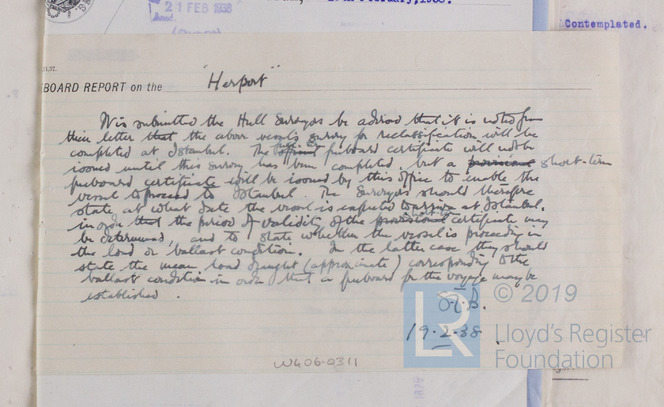 21 FEB 1938
February, 1938.
Contemplated.
BOARD REPORT on the "Herport"
It is submitted the Hull Surveyors be advised that it is noted from
their letter that the above vessel's survey for reclassification will be
completed at Istanbul. The official freeboard certificate will not be
issued until this survey has been completed, but a provisional short-term
freeboard certificate will be issued by this office to enable the
vessel to proceed to Istanbul. The Surveyors should therefore
state at what date the vessel is expected to arrive at Istanbul.
in order that the period of validity of the provisional certificate may
be determined, and to state whether the vessel is proceeding in
the load or ballast condition. In the latter case they should
state the mean load draught (approximate) corresponding to the
ballast condition in order that a freeboard for the voyage may be
established.
19-2-38.
W406-0311
© 2019
LR
Lloyd's Register
Foundation